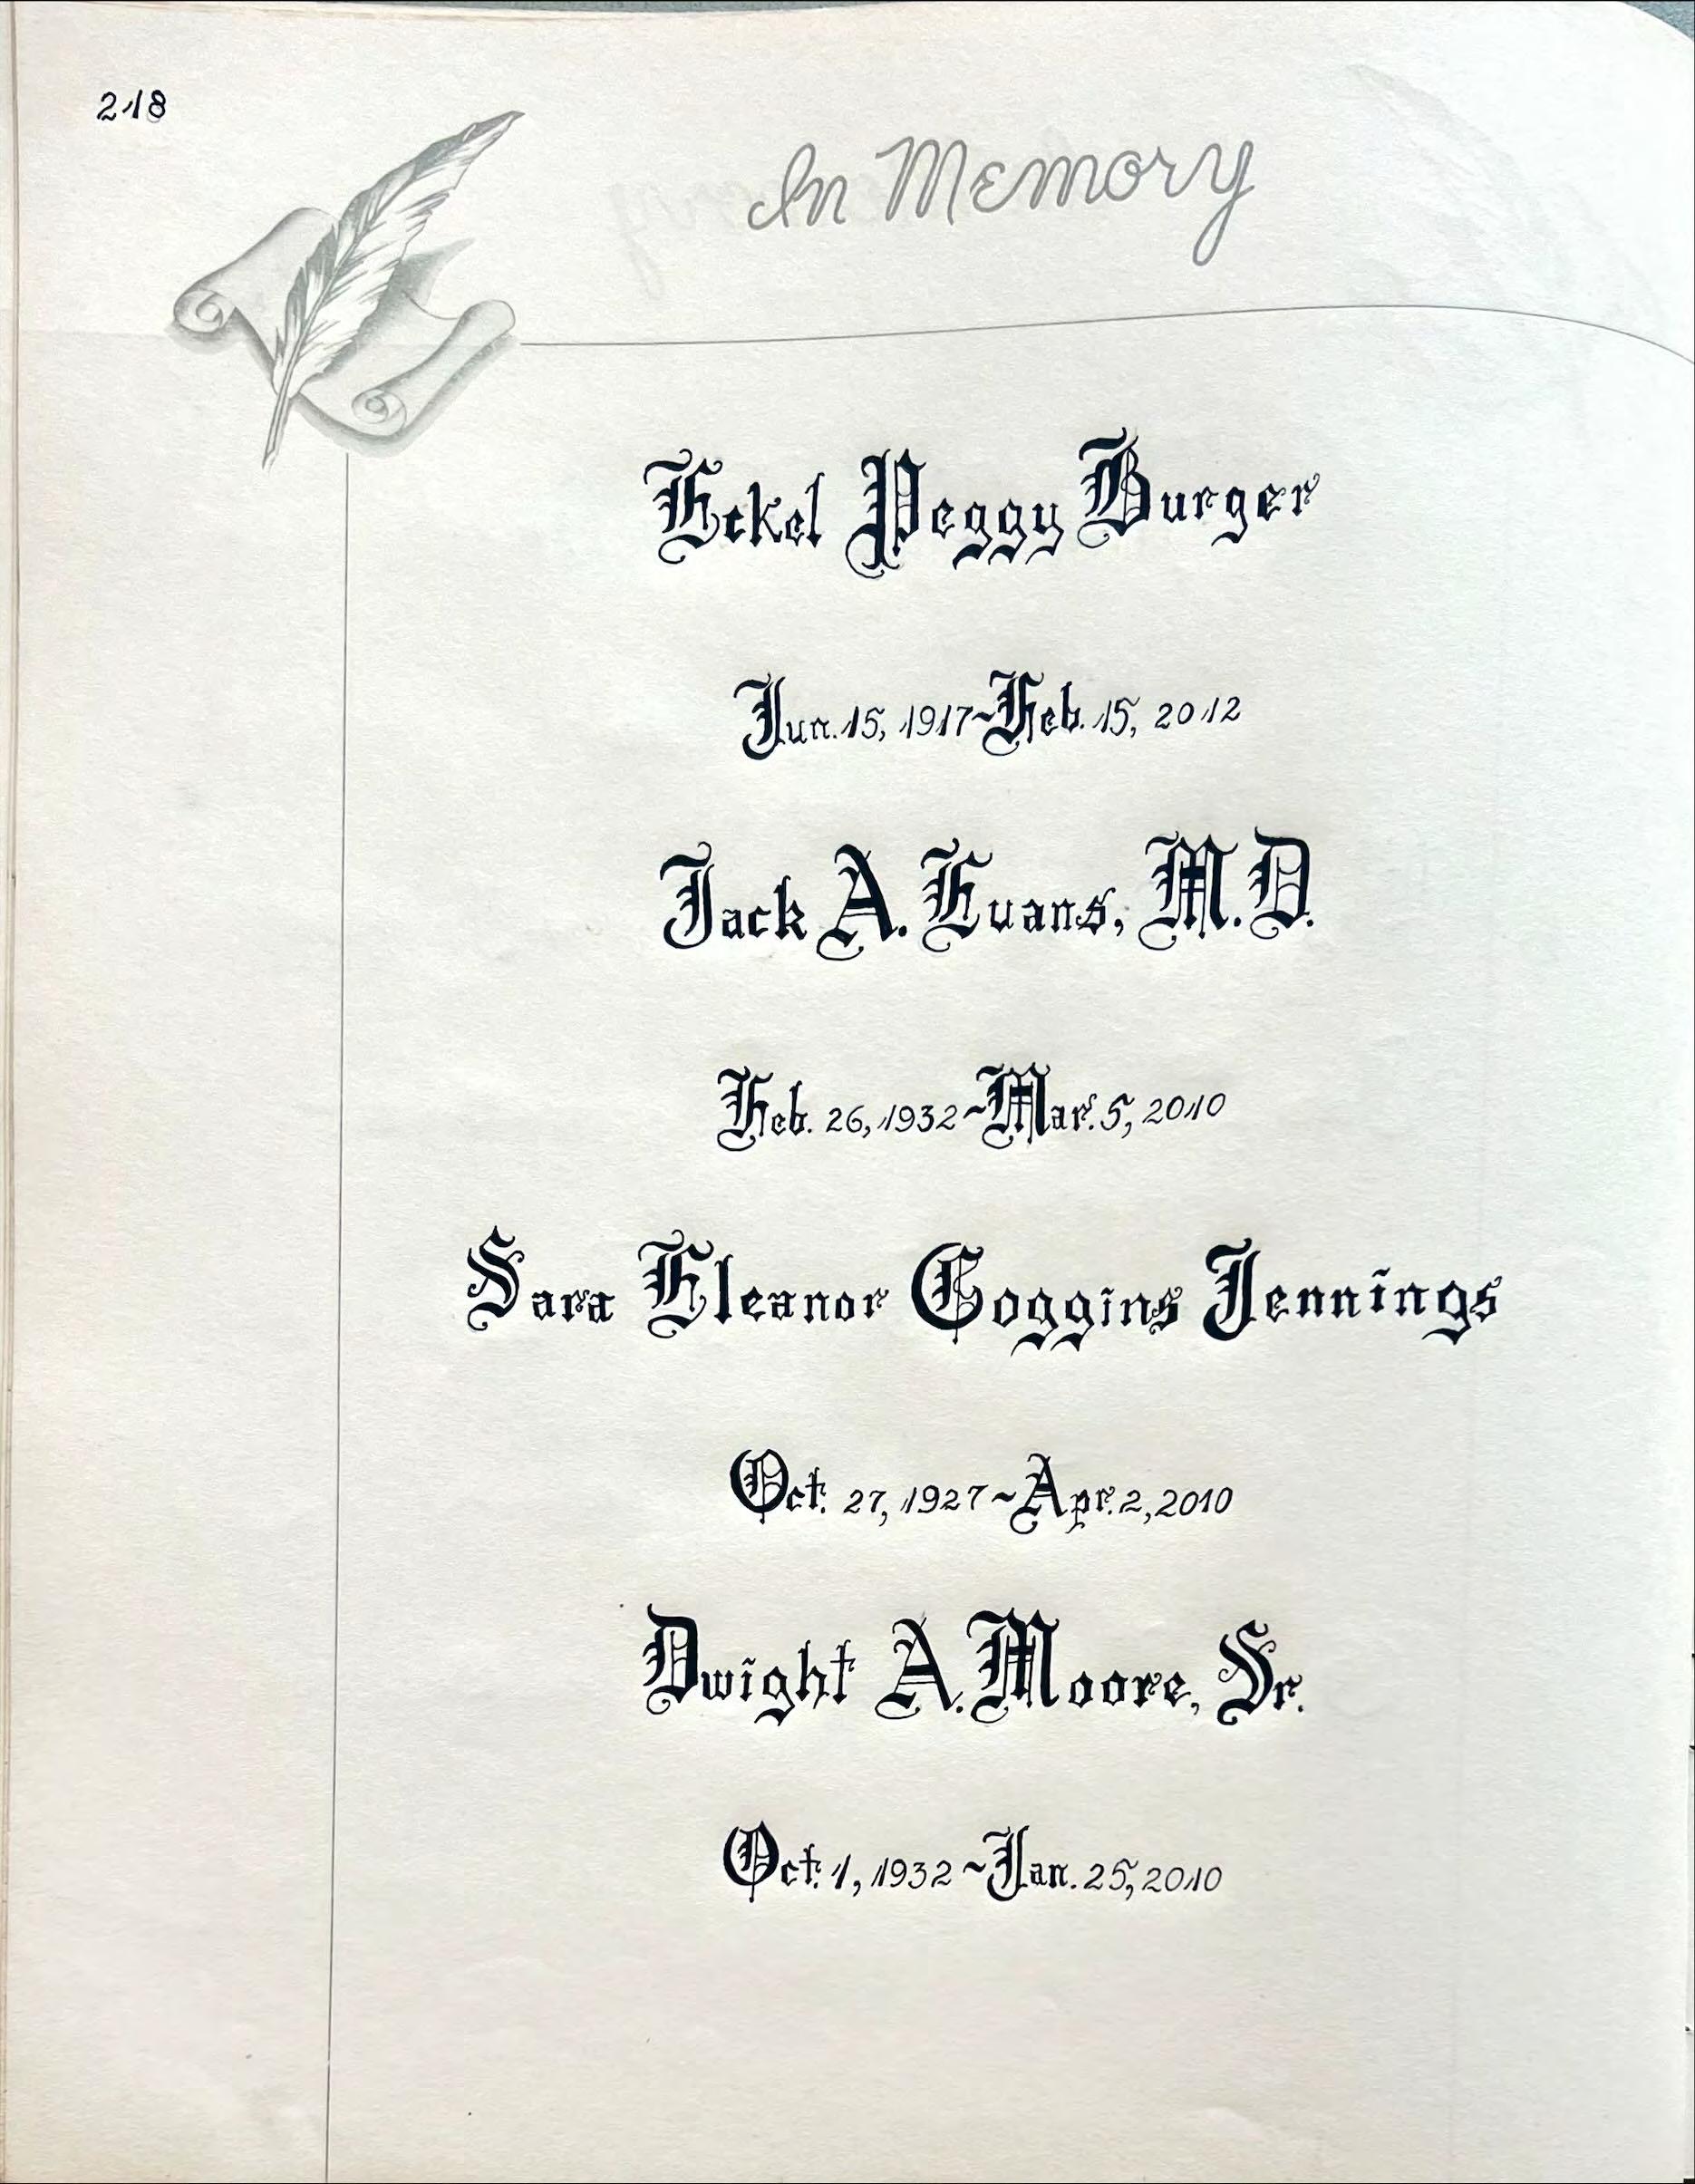 218
In Memory
Eckel Peggy Burger
Jun. 15, 1917~Feb. 15, 2012
Jack A. Evans, M.D.
Feb. 26, 1932~Mar. 5, 2010
Sara Eleanor Goggins Jennings
Oct. 27, 1927~Apr. 2, 2010
Dwight A. Moore, Sr.
Oct. 1, 1932~Jan. 25, 2010